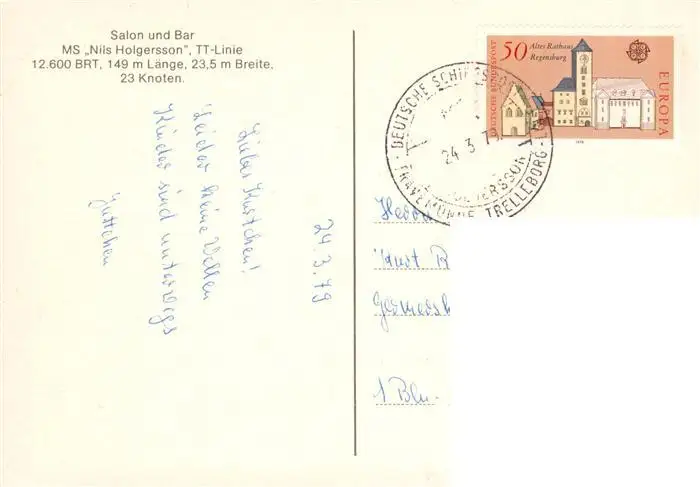 Salon und Bar
MS „Nils Holgersson", TT-Linie
12.600 BRT, 149 m Länge, 23,5 m Breite,
23 Knoten.
24.3.79
Liebes Kurtchen!
Leider keine Wellen
Kinder sind unterwegs
50 Altes Rathaus
Regensburg
DEUTSCHE BUNDESPOST
EUROPA
1978
DEUTSCHE SCHIFFSPO
24.3.79
TRAVEMÜNDE TRELLEBORG
Herrn
Kurt B
1 Bln.